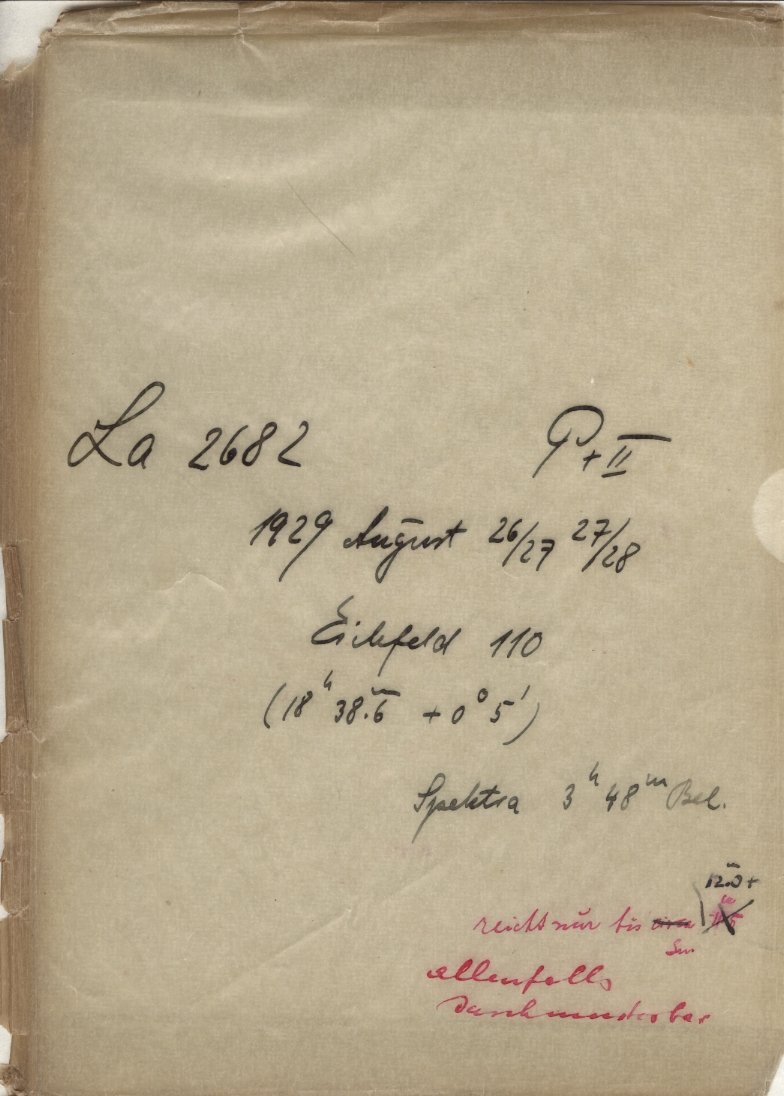 La 2682 P + II
1929 August 26/27 27/28
Eichfeld 110
(18ʰ 38.ᵐ6 + 0° 5')
Spektra 3ʰ 48ᵐ Bel.
12.ᵐ0 +
reicht nur bis
allenfalls